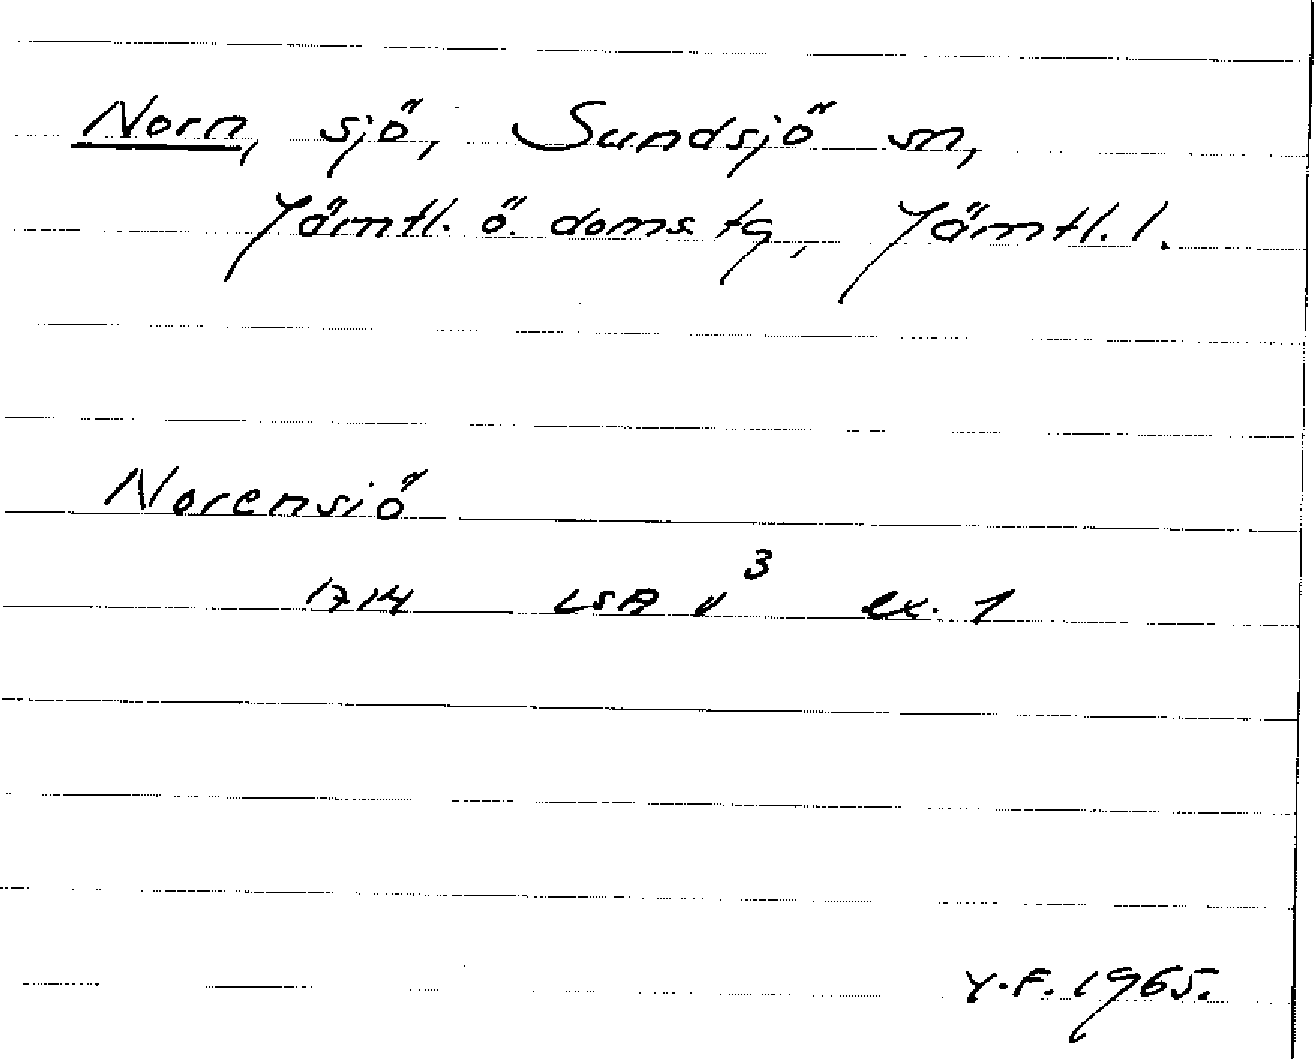 Norn, sjö, Sundsjö sn,
Jämtl. ö. doms. tg, Jämtl. l.
Norensiö
1714 LSA υ³ ex. 1
Y.F. 1965.